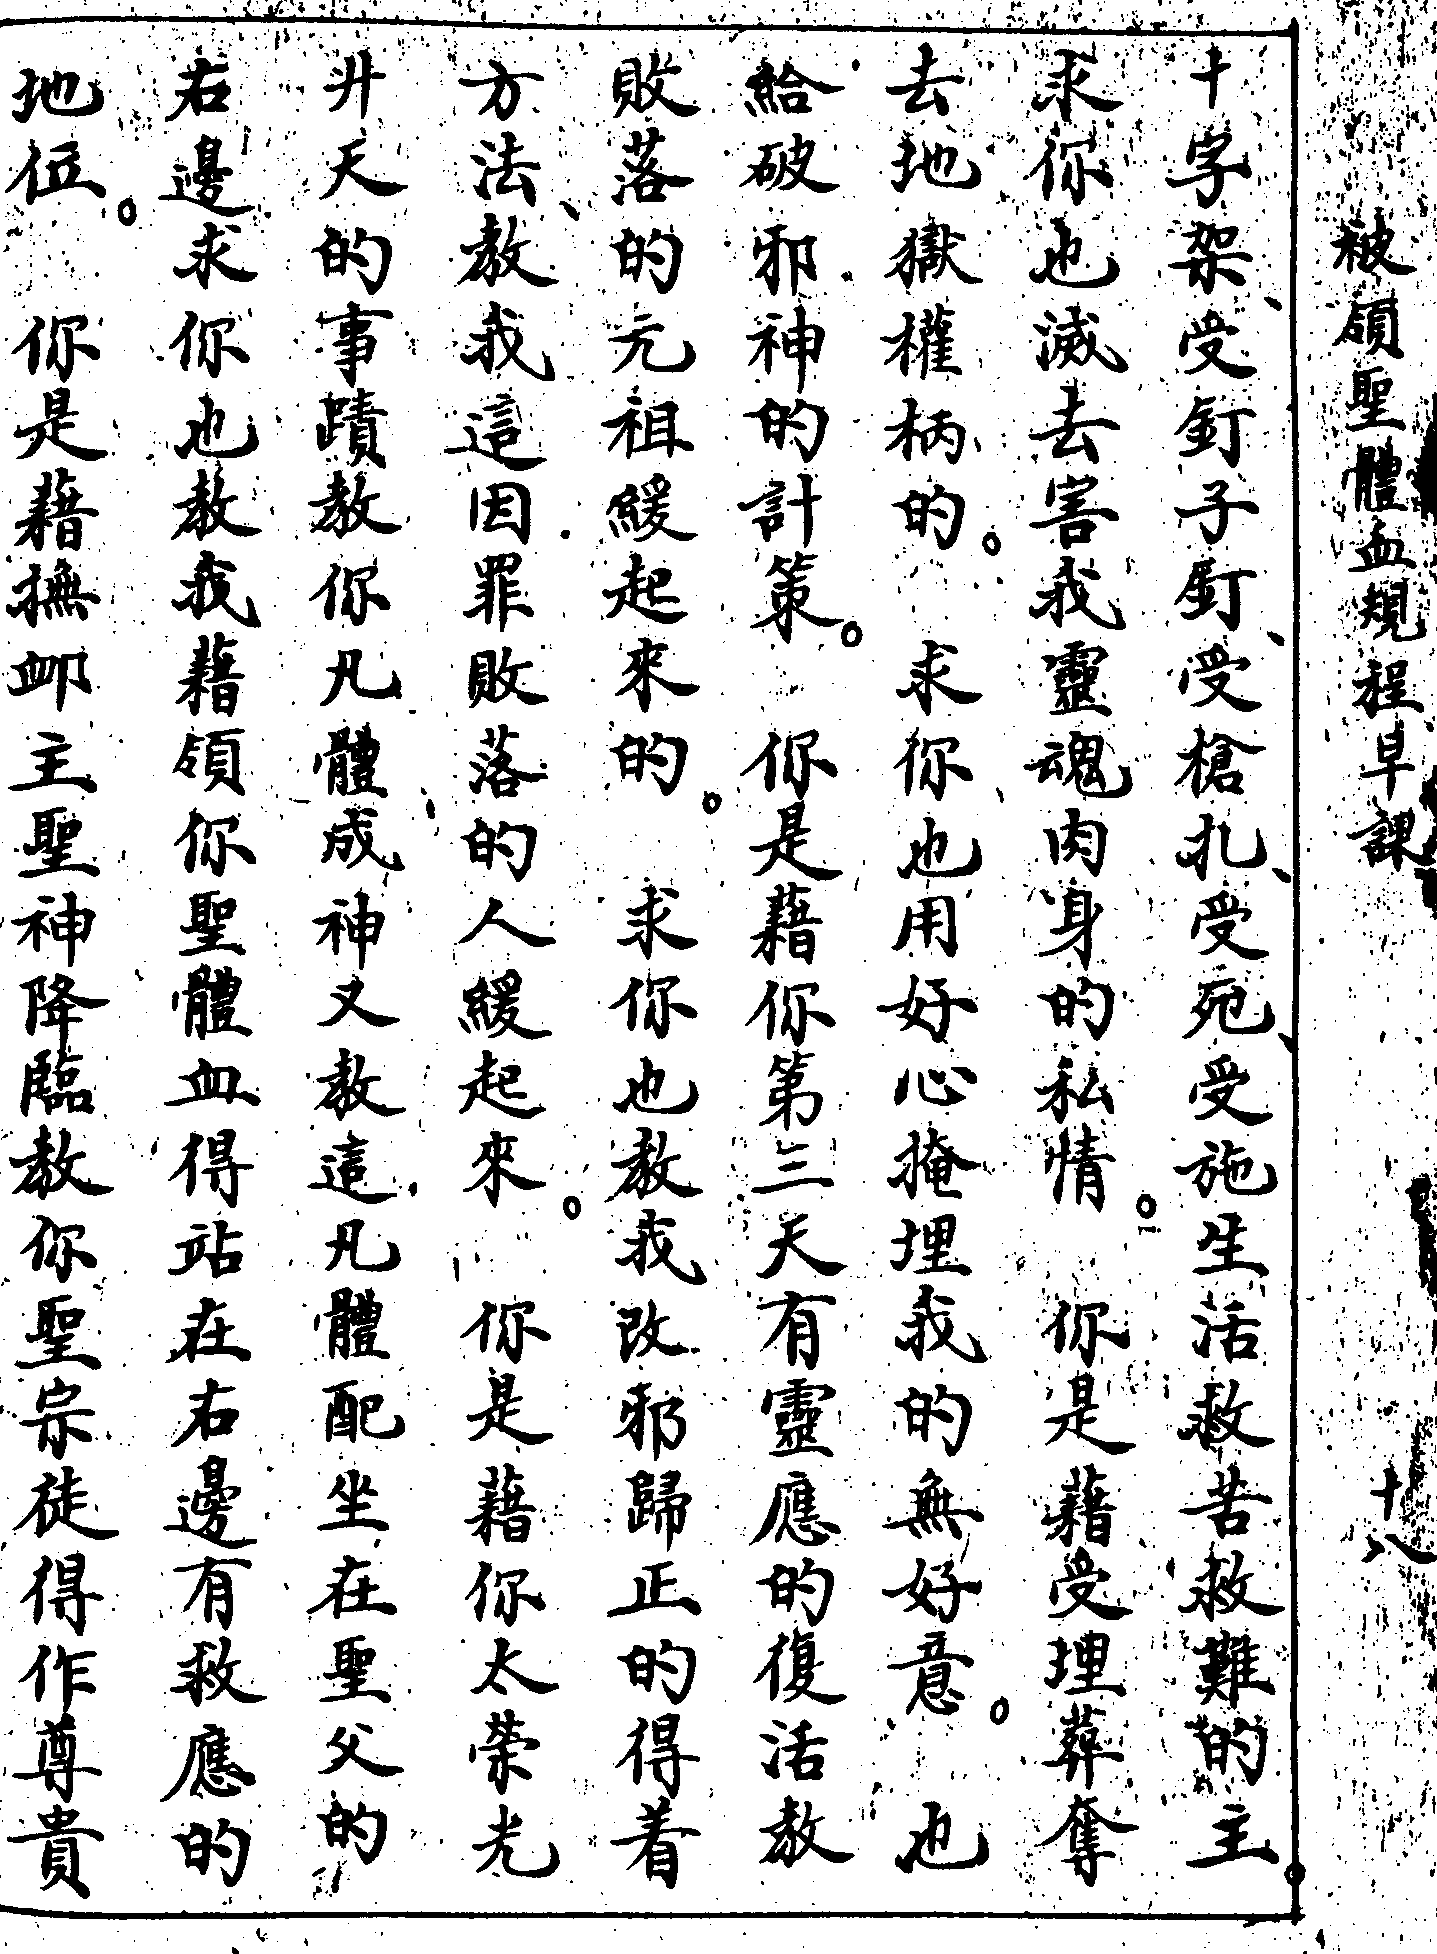 被領聖體血規程早課 十八
十字架、受釘子釘、受槍扎、受死、受施生活救苦救難的主
求你也滅去害我靈魂肉身的私情。 你是藉受埋葬奪
去地獄權柄的。 求你也用好心掩埋我的無好意。 也
給破邪神的計策。 你是藉你第三天有靈應的復活教
敗落的元祖緩起來的。 求你也教我改邪歸正的得着
方法、教我這因罪敗落的人緩起來。 你是藉你太榮光
升天的事蹟教你凡體成神又教這凡體配坐在聖父的
右邊求你也教我藉領你聖體血得站在右邊有救應的
地位。 你是藉撫卹主聖神降臨教你聖宗徒得作尊貴